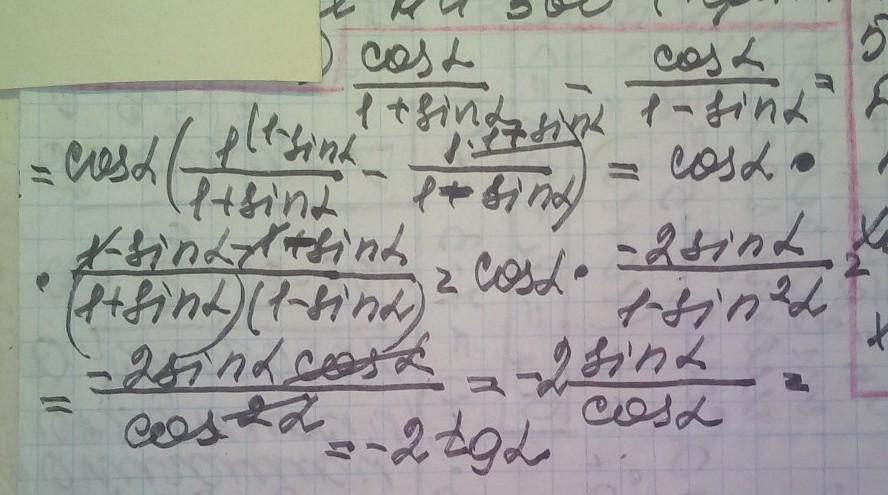 ) cosα/(1+sinα) - cosα/(1-sinα) =
= cosα(1(1-sinα/(1+sinα) - 1·1+sinα/(1-sinα)) = cosα ·
· (1-sinα-1-sinα)/((1+sinα)(1-sinα)) = cosα · (-2sinα)/(1-sin²α) =
= (-2sinα cosα)/(cos²α) = -2 sinα/cosα =
= -2tgα